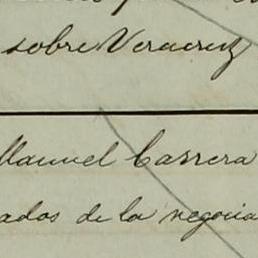 sobre Veracruz
Manuel Carrera
ados de la negocia